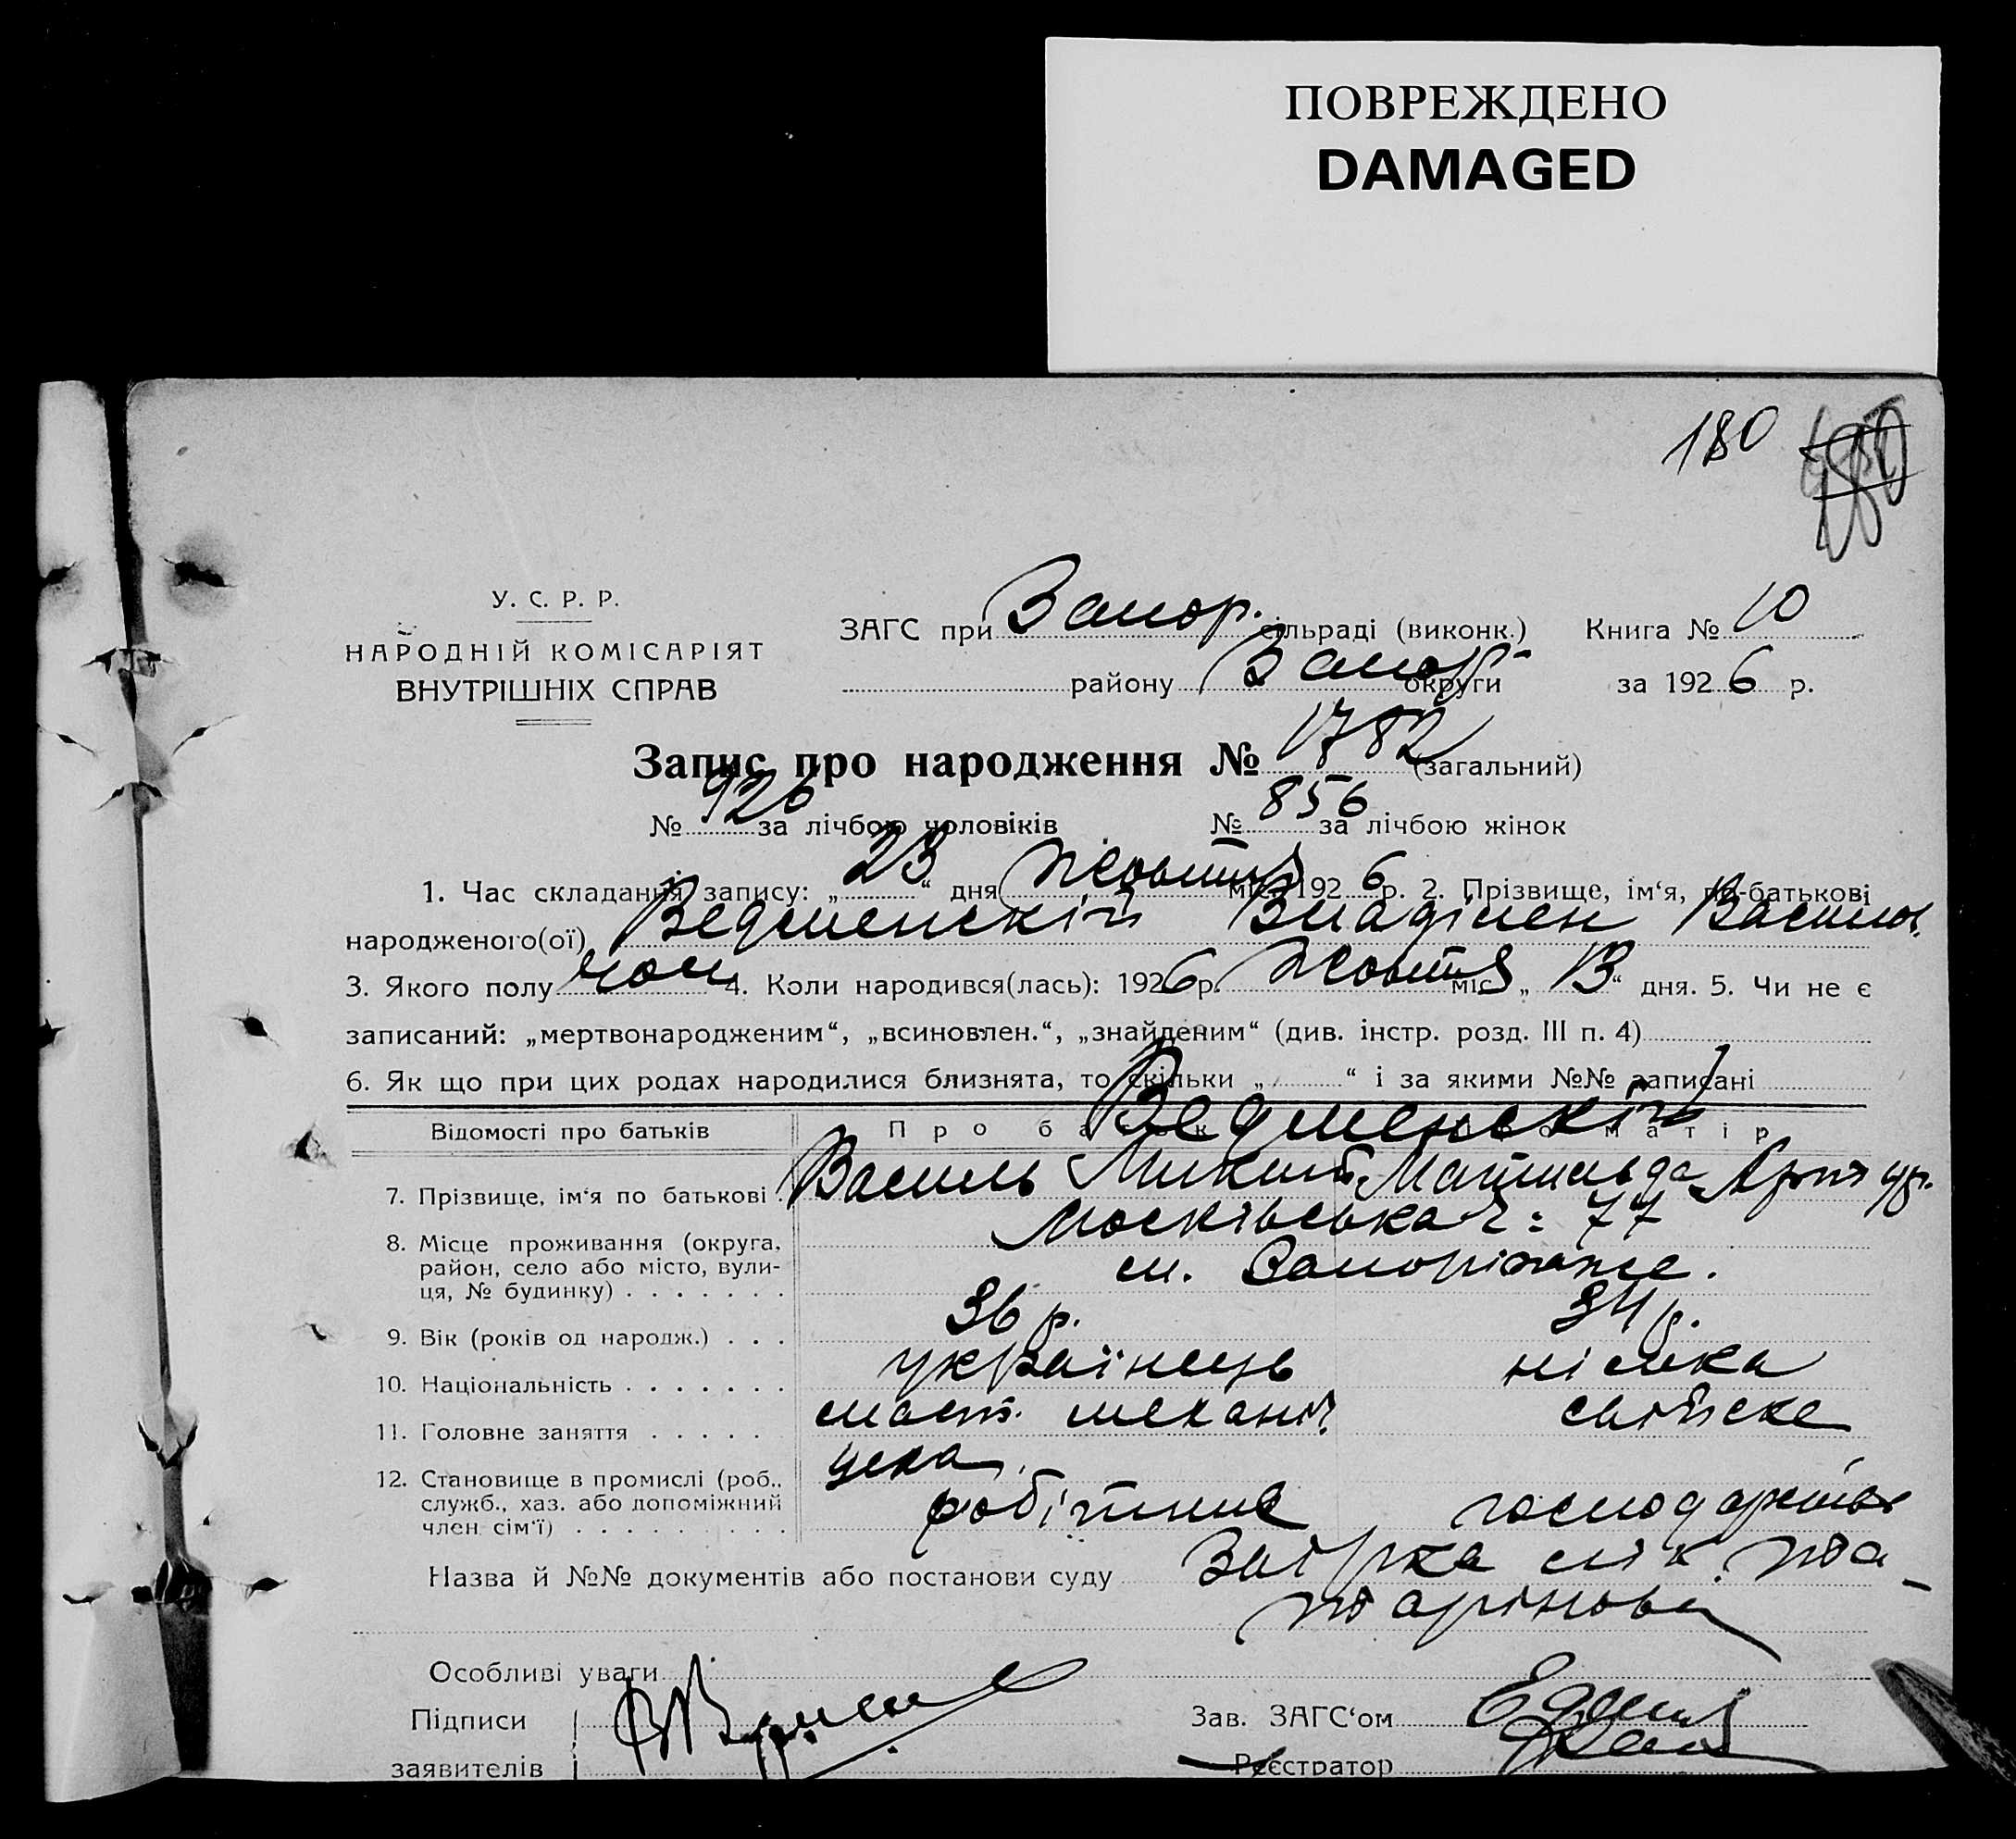 ПОВРЕЖДЕНО
DAMAGED
180
У. С. Р. Р.
НАРОДНІЙ КОМІСАРІЯТ
ВНУТРІШНІХ СПРАВ
ЗАГС при Запор. сільраді (виконк.) Книга № 10
району Запор. округи за 1926 р.
Запис про народження № 1782 (загальний)
№ 926 за лічбою чоловіків № 856 за лічбою жінок
1. Час складання запису: „23“ дня жовтня міс. 1926 р. 2. Прізвище, ім‘я, по-батькові
народженого(ої) Ведменскій Владілен Васильов.
3. Якого полу чол 4. Коли народився(лась): 1926 р. жовтня міс. „13“ дня. 5. Чи не є
записаний: „мертвонародженим“, „всиновлен.“, „знайденим“ (див. інстр. розд. III п. 4)
6. Як що при цих родах народилися близнята, то скільки „ “ і за якими №№ записані
Відомості про батьків Про батька Про матір
Ведменскій
7. Прізвище, ім‘я по батькові Василь Микит. Матильда Артур.
Московська ч: 77
8. Місце проживання (округа, район, село або місто, вулиця, № будинку) м. Запоріжже.
9. Вік (років од народж.) 36 р. 34 р.
10. Національність українець німка
11. Головне заняття маст. механіч. цеха хатнє
12. Становище в промислі (роб., служб., хаз. або допоміжний член сім‘ї) робітник господарство
Назва й №№ документів або постанови суду лік. та-
тарінова
Особливі уваги
Підписи
заявителів
Зав. ЗАГС‘ом
Реєстратор